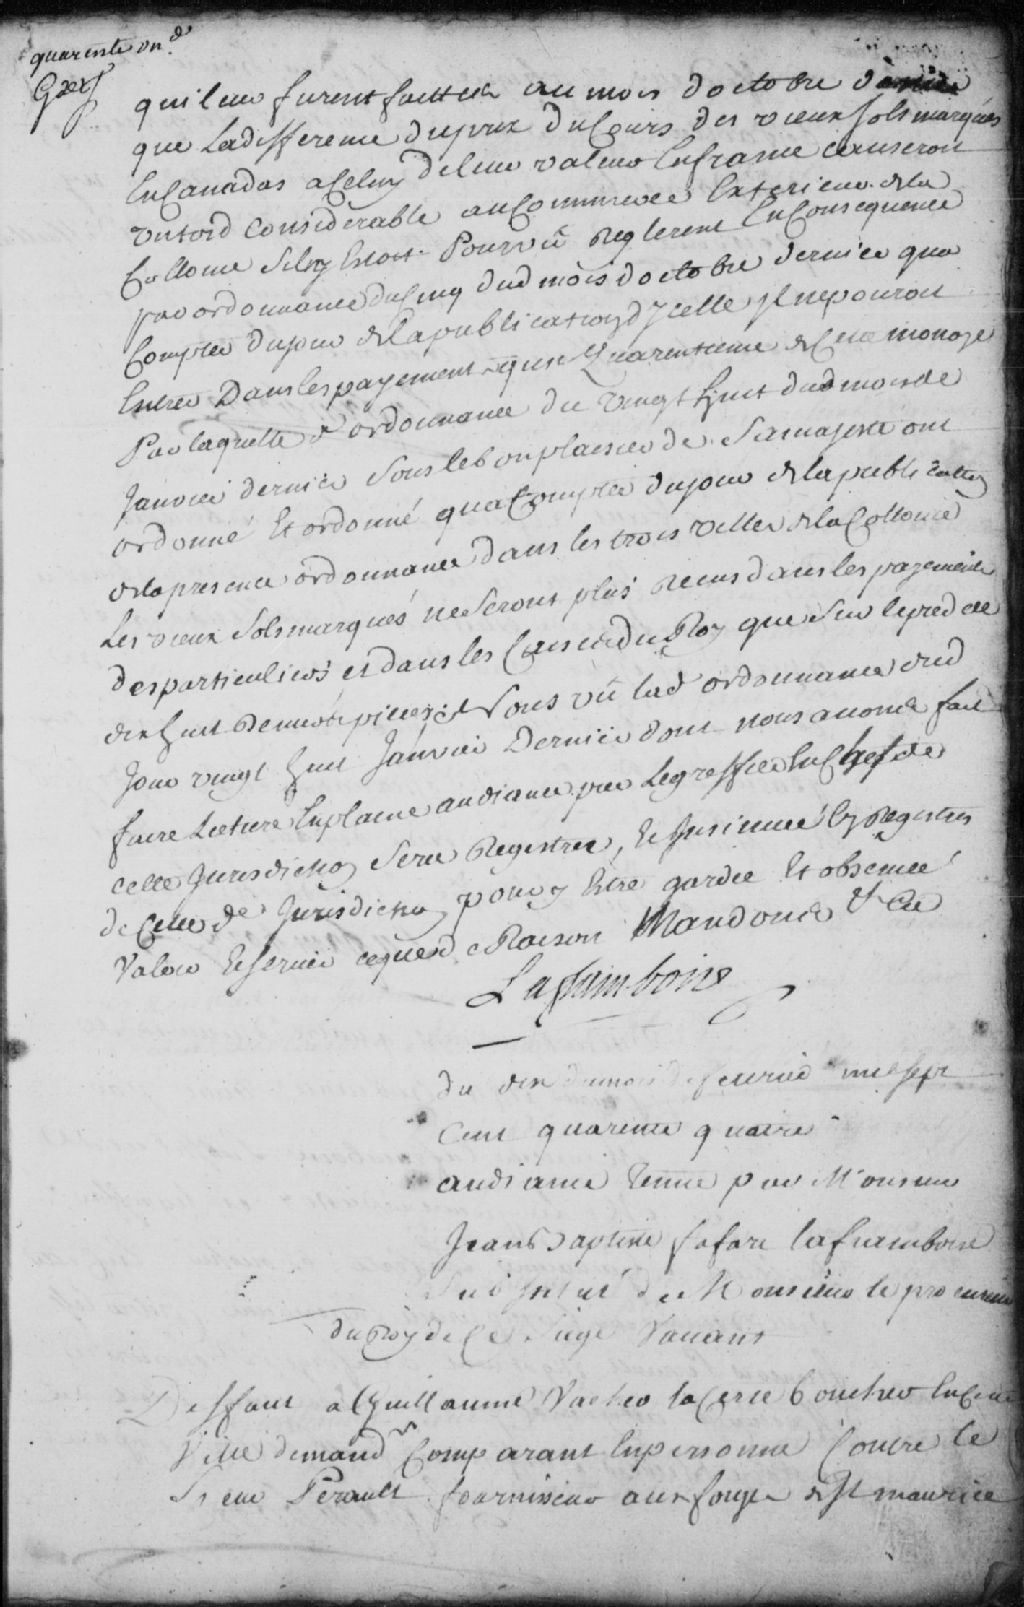 quarente un.e
qu'il en furent faitte au mois doctobre dernier
que La difference du prix du Cours des vieux sols marqués
En Canadas a Celuy de leur valeur En france causeroit
un tord Considerable au Commerce Exterieur de la
Collonie Pourvû reglerent En Consequence
par ordonnance du Cinq dud mois doctobre dernier qua
Compter du jour de la publication d'ycelle il ne pouroit
Entrer Dans les payement qun Quarentieme de Cette monoye
Par laquelle d ordonnance du vingt huit dud mois de
Janvier dernier Sous le bon plaisir de Sa majesté ont
ordonné Et ordonne qua Compter du jour de la publication
de la presente ordonnance dans les trois villes de la Collonie
Les vieux Sols marqués ne Seront plus Recus dans les payements
des particuliers et dans les Caisses du Roy que Sur le pied de
dix huit Deniers piece Nous vû lad ordonnance dud
Jour vingt huit Janvier Dernier dont nous avons fait
faire Lecture En plaine audiance par Le greffier En Chef de
cette Jurisdiction Sera Registrée, Et Insinuée Es Registres
de Cette de Jurisdiction pour y Estre gardée Et observée
Valoir Et Servir ce que de Raison Mandons &.Ca
Laframboise
du dix du mois de fevrier mil sept
Cent quarente quatre
audiance Tenue par Monsieur
Jean Baptiste fafare laframboise
Substitut de Monsieur le procureur
du Roy de Ce Siege Vacant
Deffaut a Guillaume Vacher laCerte boucher En Cette
Ville demandr Comparant En personne Contre Le
Sieur Perault fournisseur aux forges de St maurice